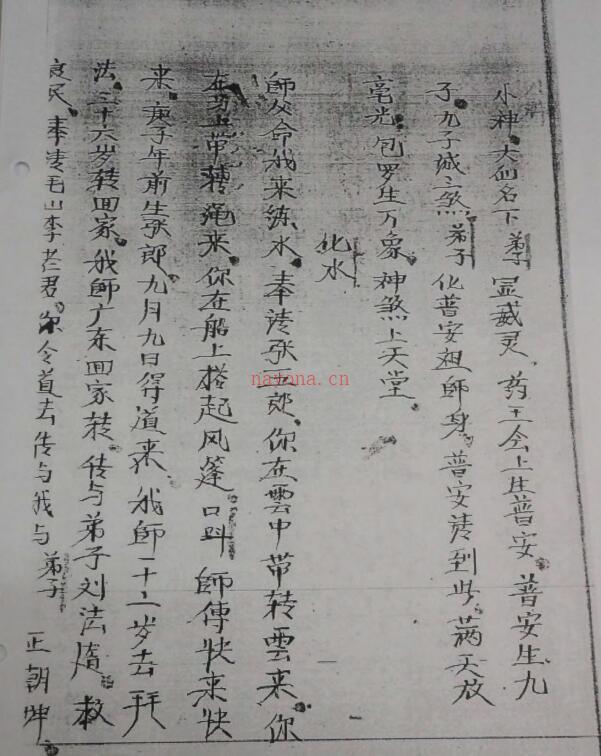 小神大仙名下弟子显威灵。药王会上生普安。普安生九
子。九子城三煞。弟子化普安祖師身。普安请到此。满天放
毫光。包罗生万象。神煞上天堂。
化水
師父命我来练水。奉请张五郎。你在雲中带转雲来。你
在带转绳来。你在船上搭起风篷。口叫師傅快来快
来。庚子年前生张郎。九月九日得道来。我師一十二岁去拜
法。三十六岁转回家。我師广东回家转。传与弟子刘法隋。救
良民。奉请毛山李老君。令道去传与我与弟子正朝坤。
natona.cn